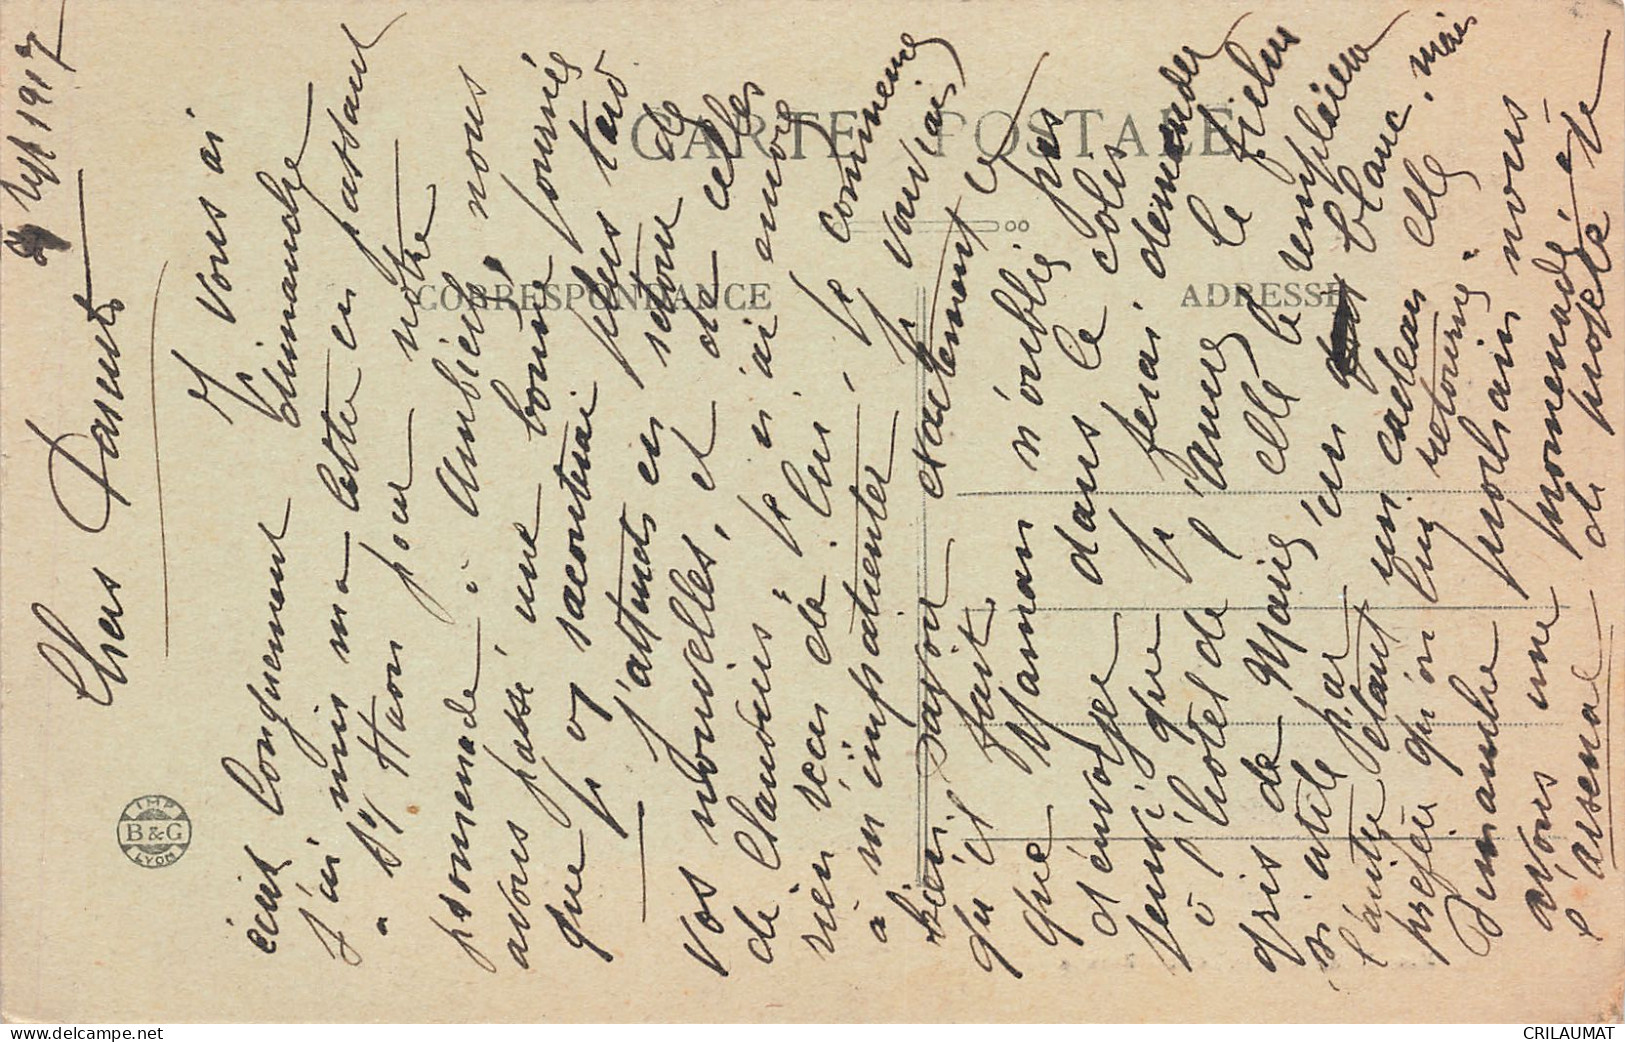 Sept 1917
Chers Parents
Je vous ai
écrit longuement dimanche
J'ai mis ma lettre en passant
à St Haon pour notre
promenade à Ambierle, nous
avons passé une bonne journée
que je vous raconterai plus tard
J'attends en retour de
vos nouvelles, et de celles
de Claudius je n'ai encore
rien reçu de lui, je commence
à m'impatienter je voudrais
bien savoir exactement ce
qu'il fait
que Maman n'oublie pas
d'envoyer dans le colis
que je ferai demander
à l'hôtel de l'ange le fichu
gris de Marie elle le remplacera
si utile par un blanc, mais
l'autre étant un cadeau elle
préfère qu'on lui retourne
Dimanche prochain nous
avons une promenade à
l'arsenal de
CARTE POSTALE
CORRESPONDANCE
ADRESSE
IMP
B & G
LYON
CRILAUMAT
www.delcampe.net